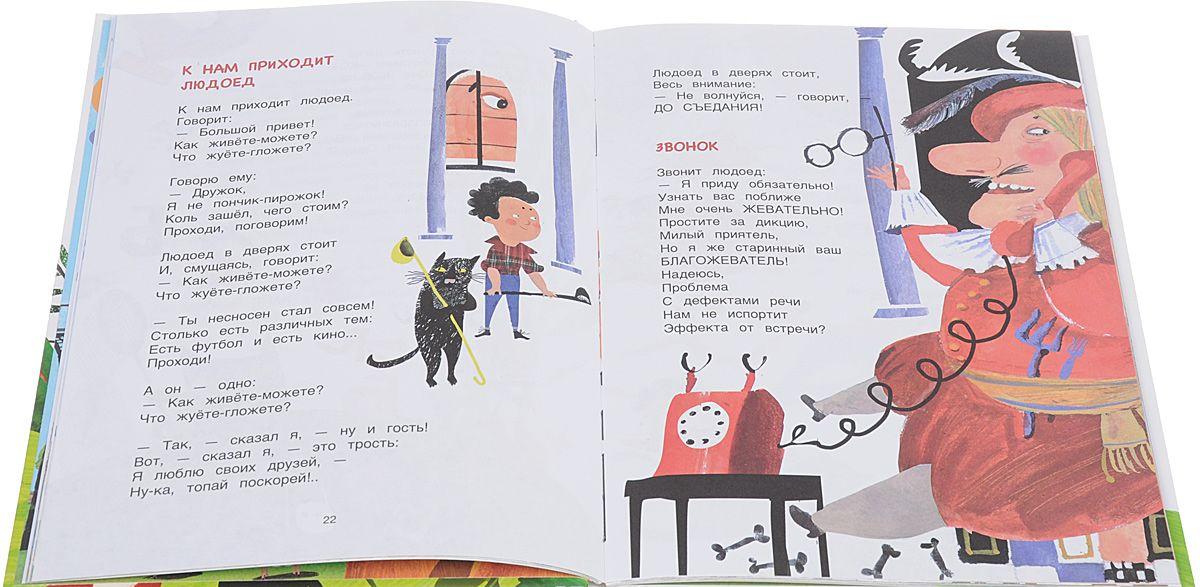 К НАМ ПРИХОДИТ
ЛЮДОЕД
К нам приходит людоед.
Говорит:
— Большой привет!
Как живёте-можете?
Что жуёте-гложете?
Говорю ему:
— Дружок,
Я не пончик-пирожок!
Коль зашёл, чего стоим?
Проходи, поговорим!
Людоед в дверях стоит
И, смущаясь, говорит:
— Как живёте-можете?
Что жуёте-гложете?
— Ты несносен стал совсем!
Столько есть различных тем:
Есть футбол и есть кино...
Проходи!
А он — одно:
— Как живёте-можете?
Что жуёте-гложете?
— Так, — сказал я, — ну и гость!
Вот, — сказал я, — это трость:
Я люблю своих друзей, —
Ну-ка, топай поскорей!..
22
Людоед в дверях стоит,
Весь внимание:
— Не волнуйся, — говорит,
ДО СЪЕДАНИЯ!
ЗВОНОК
Звонит людоед:
— Я приду обязательно!
Узнать вас поближе
Мне очень ЖЕВАТЕЛЬНО!
Простите за дикцию,
Милый приятель,
Но я же старинный ваш
БЛАГОЖЕВАТЕЛЬ!
Надеюсь,
Проблема
С дефектами речи
Нам не испортит
Эффекта от встречи?